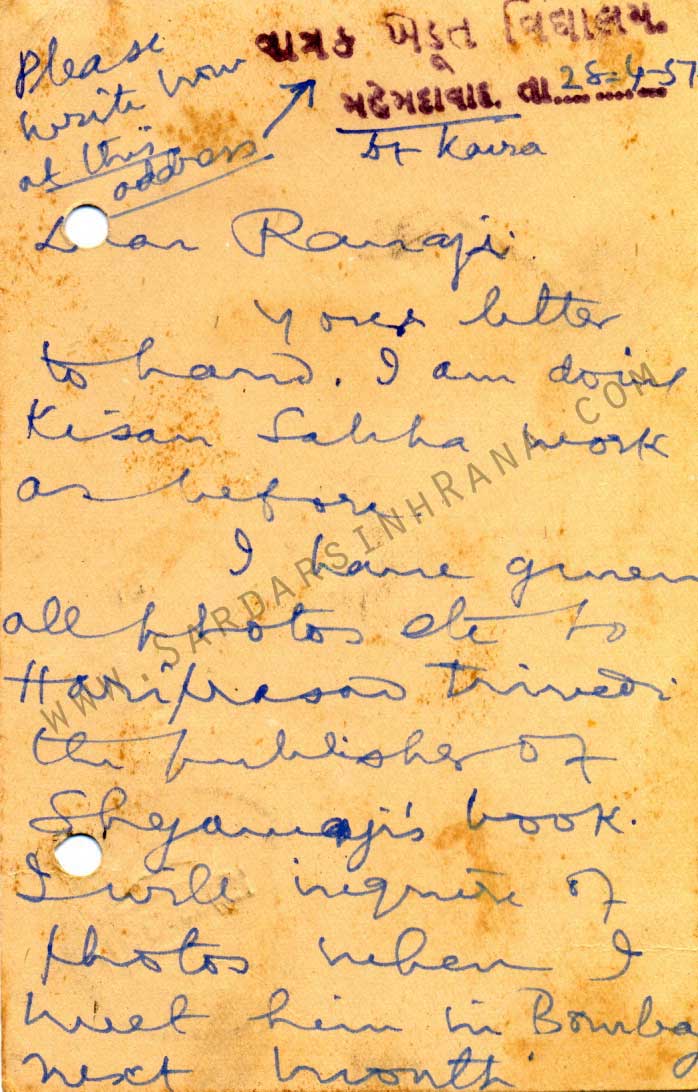 Please
write now
at this
address
વાત્રક ખેડૂત વિદ્યાલય.
મહેમદાવાદ. તા. 28-4-57
Dt Kaira
Dear Ranaji.
Your letter
to hand. I am doing
Kisan Sabha work
as before.
I have given
all photos etc to
Hariprasad Trivedi
the publisher of
Shyamaji's book.
I will inquire of
photos when I
meet him in Bombay
next month
WWW.SARDARSINHRANA.COM